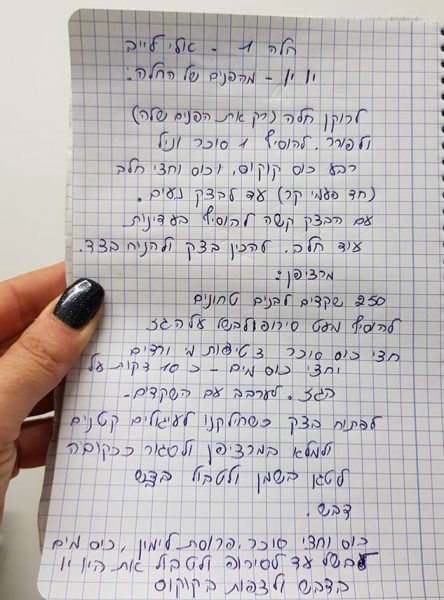 חלה 1 - אולי לייב
יו יו - מהפנים של החלה:
לרוקן חלה (רק את הפנים שלה)
ולפורר. להוסיף 1 סוכר וניל
רבע כוס קוקוס, וכוס וחצי חלב
(חד פעמי קר) עד להבצק נעים.
עם הבצק קשה להוסיף בעדינות
עוד חלב. להכין בצק ולהניח בצד.
מרציפן:
250 שקדים לבנים טחונים
להוסיף מעט סירופ ולבשל על הגז
חצי כוס סוכר 2 טיפות מי ורדים
וחצי כוס מים - כ 10 דקות על
הגז. לערבב עם השקדים.
לפתוח בצק כשחילקנו לעיגולים קטנים
ולמלא במרציפן ולסגור ככקובה
לטגן בשמן ולטבול
דבש.
כוס וחצי סוכר, פרוסת לימון, כוס מים
לבשל עד לסירופ ולטבול את היו יו
בדבש ולצפות בקוקוס